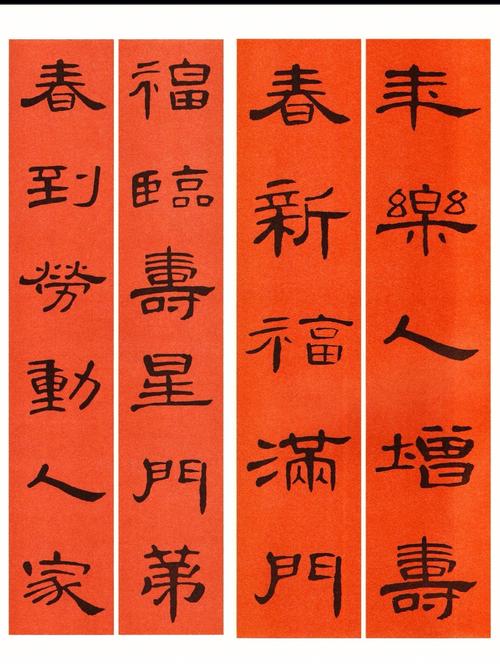 年樂人增壽
春新福滿門
福臨壽星門第
春到勞動人家